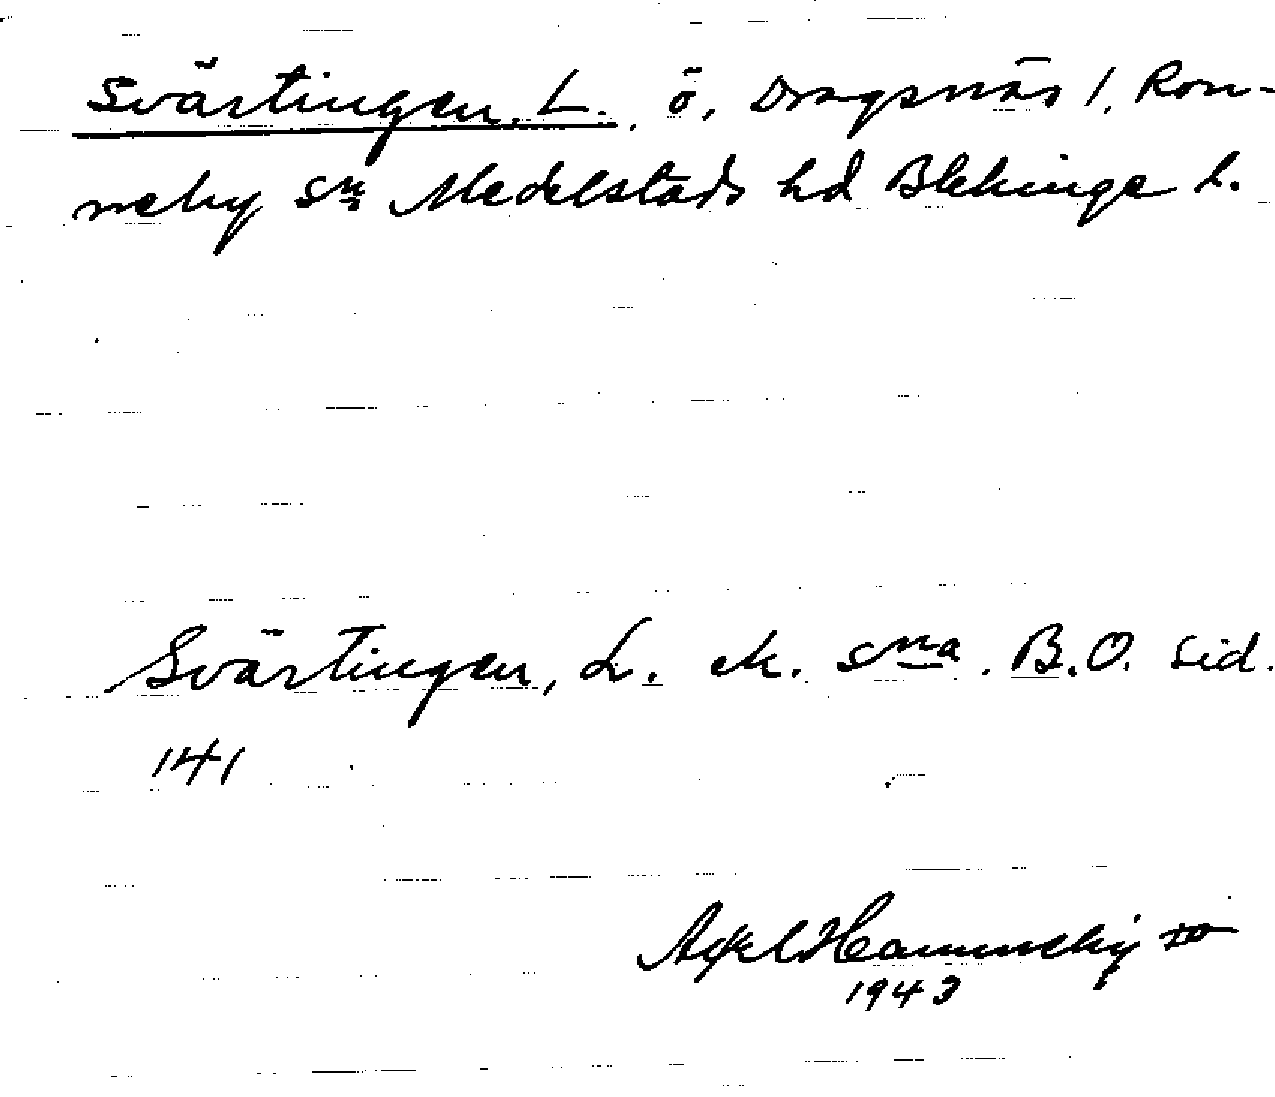 Svärtingen, L. ö, Dragsnäs 1, Ron-
neby sn Medelstads hd Blekinge L.
Svärtingen, L. sna. B.O. sid.
141
Axel
1943